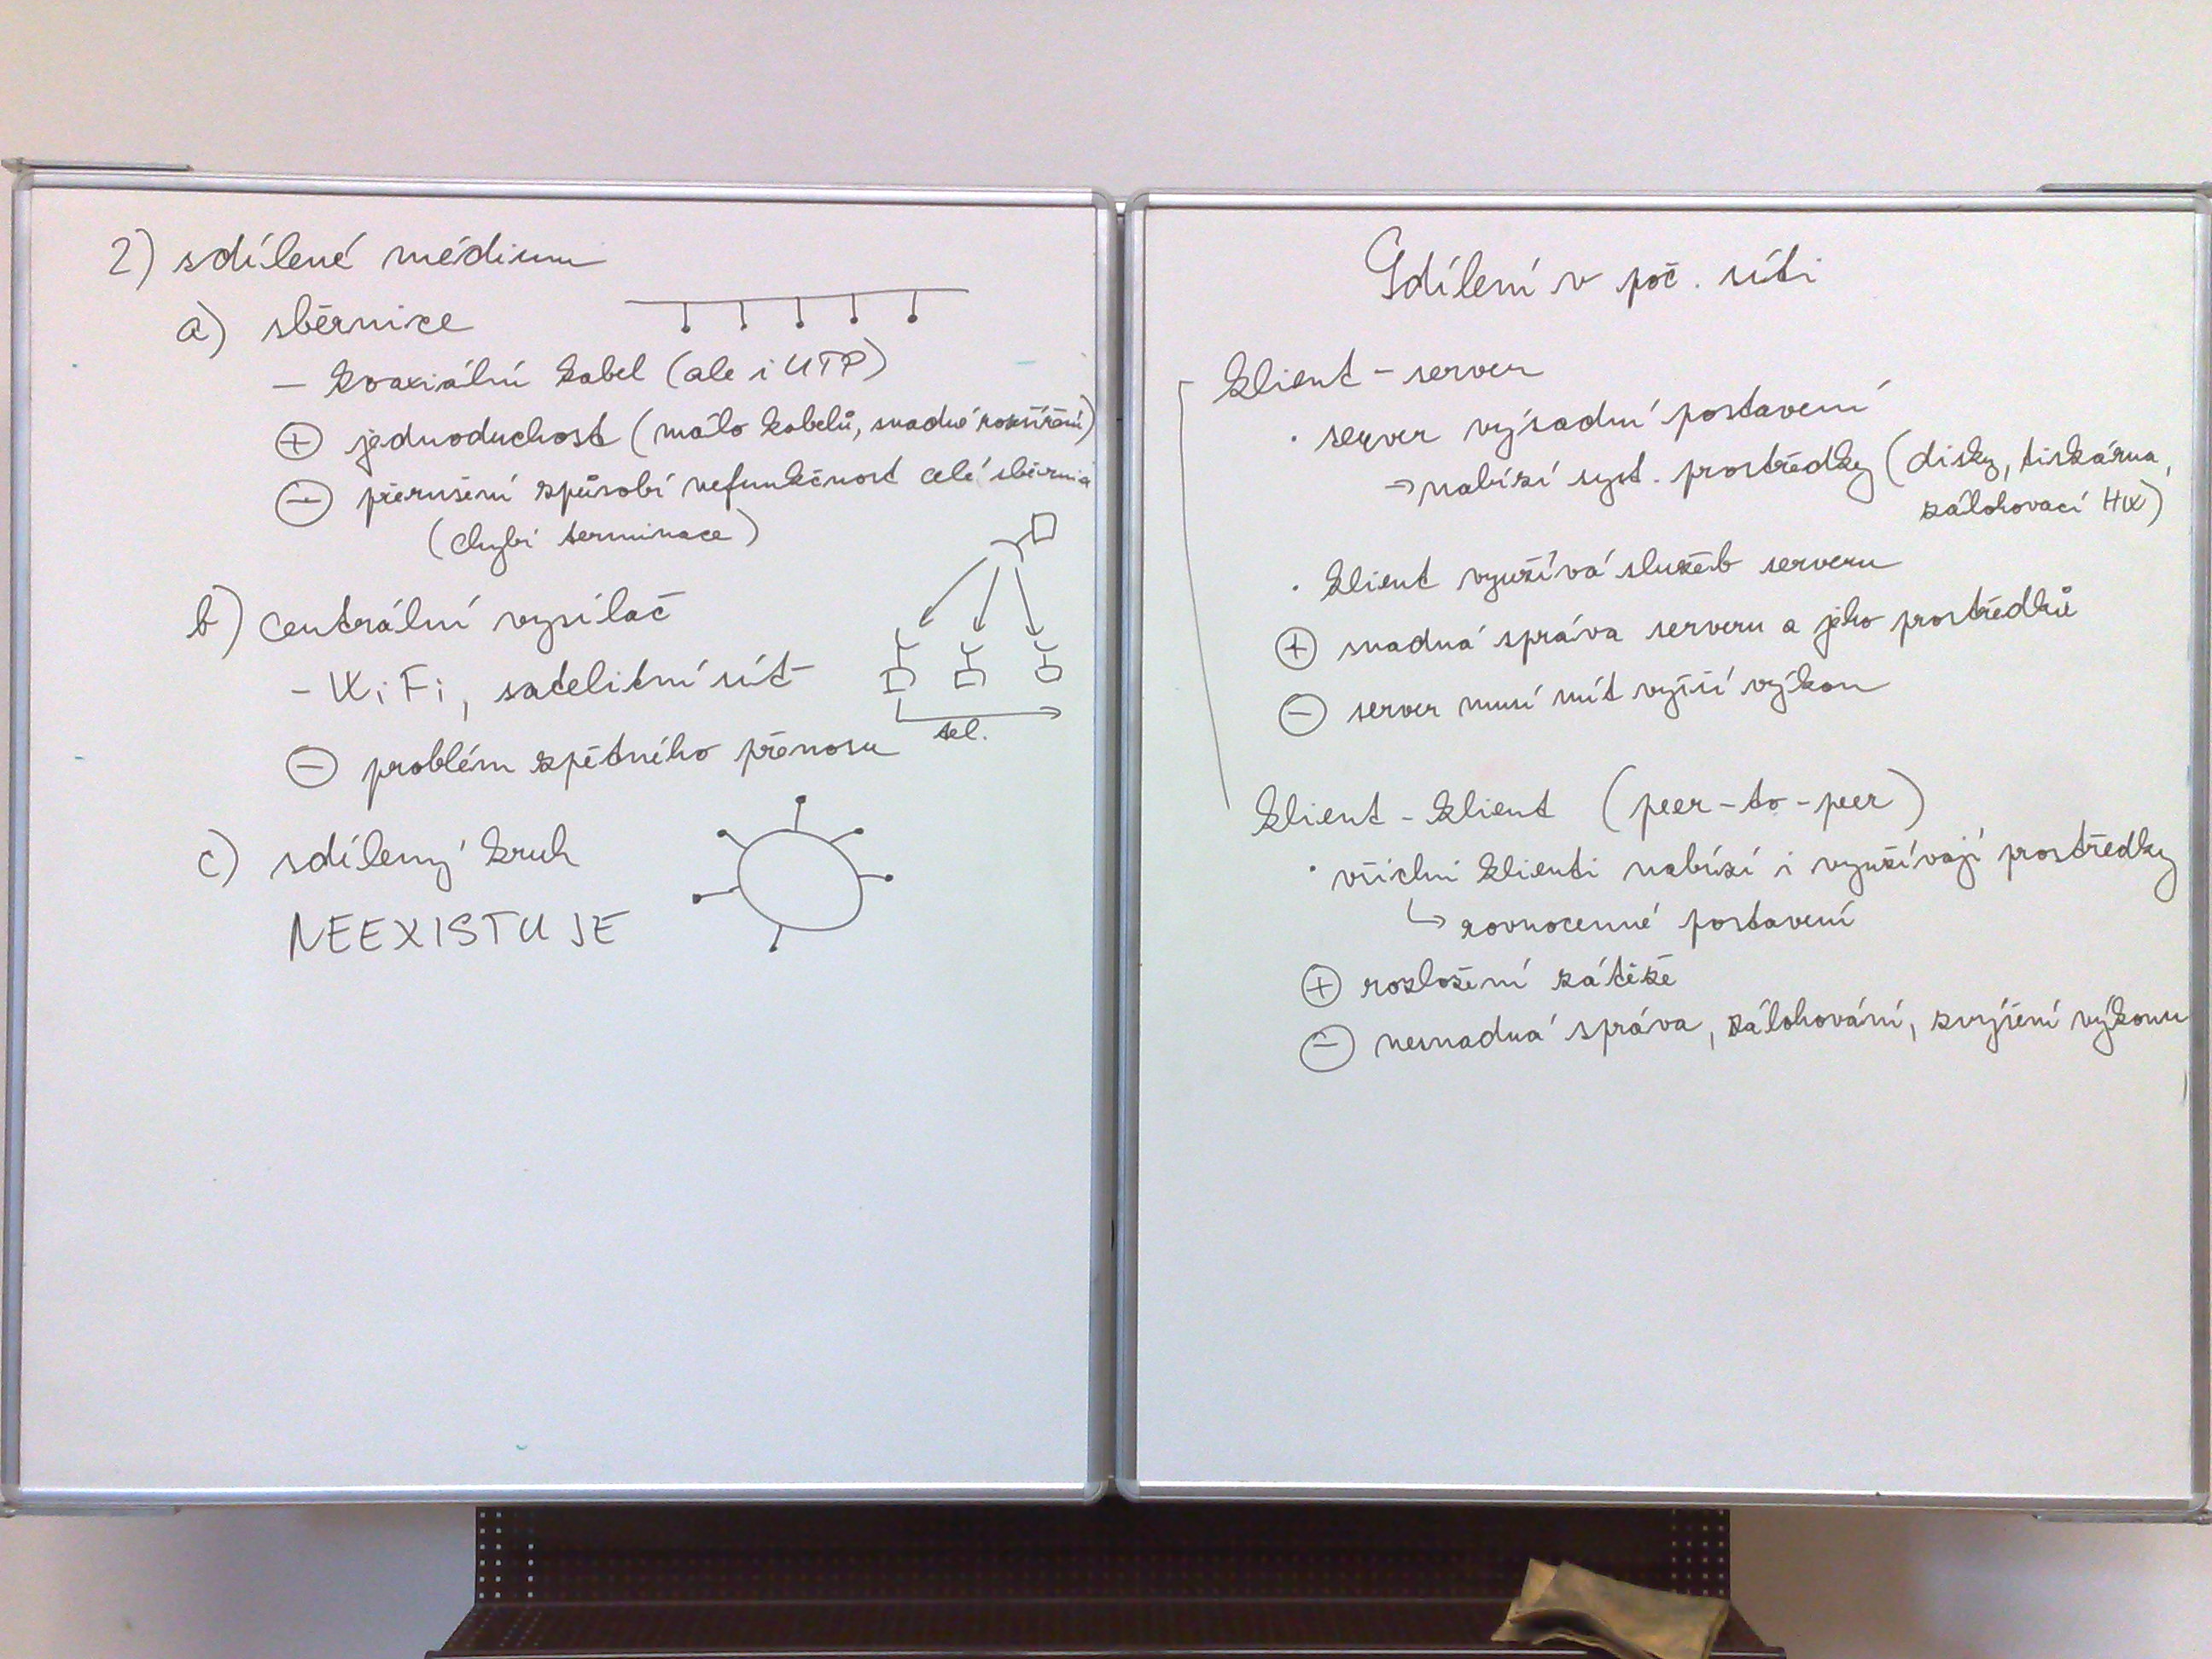 2) sdílené médium
a) sběrnice
- koaxiální kabel (ale i UTP)
+ jednoduchost (málo kabelů, snadné rozšíření)
- přerušení způsobí nefunkčnost celé sběrnice
(chybí terminace)
b) centrální vysílač
- WiFi, satelitní síť
tel.
- problém zpětného přenosu
c) sdílený kruh
NEEXISTUJE
Sdílení v poč. síti
klient - server
· server výsadní postavení
→ nabízí syst. prostředky (disky, tiskárna,
zálohovací HW)
· klient využívá služeb serveru
+ snadná správa serveru a jeho prostředků
- server musí mít vyšší výkon
klient - klient (peer-to-peer)
· všichni klienti nabízí i využívají prostředky
↳ rovnocenné postavení
+ rozložení zátěže
- nesnadná správa, zálohování, zvýšení výkonu